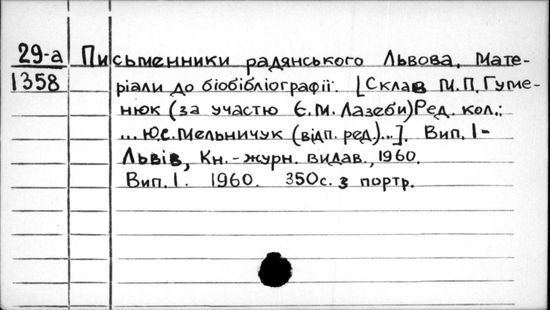 29-а Письменники радянського Львова. Мате-
1358 ріали до біобібліографії. [Склав М.П. Гуме-
нюк (за участю Є.М. Лазеби) Ред. кол.:
... Ю.С. Мельничук (відп. ред.)...]. Вип. I-
Львів, Кн.-журн. видав., 1960.
Вип. I. 1960. 350с. з портр.